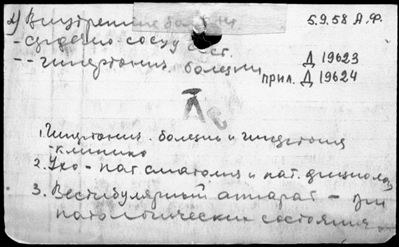 2) Внутренние болезни. 5.9.58 А.Ф.
- сердечно-сосуд сист. Д 19623
-- гипертонич. болезнь прил. Д 19624
1. Гипертонич. болезнь и гипертония
- клиника
2. Ухо - пат анатомия и пат. физиолог
3. Вестибулярный аппарат - при
патологических состояния